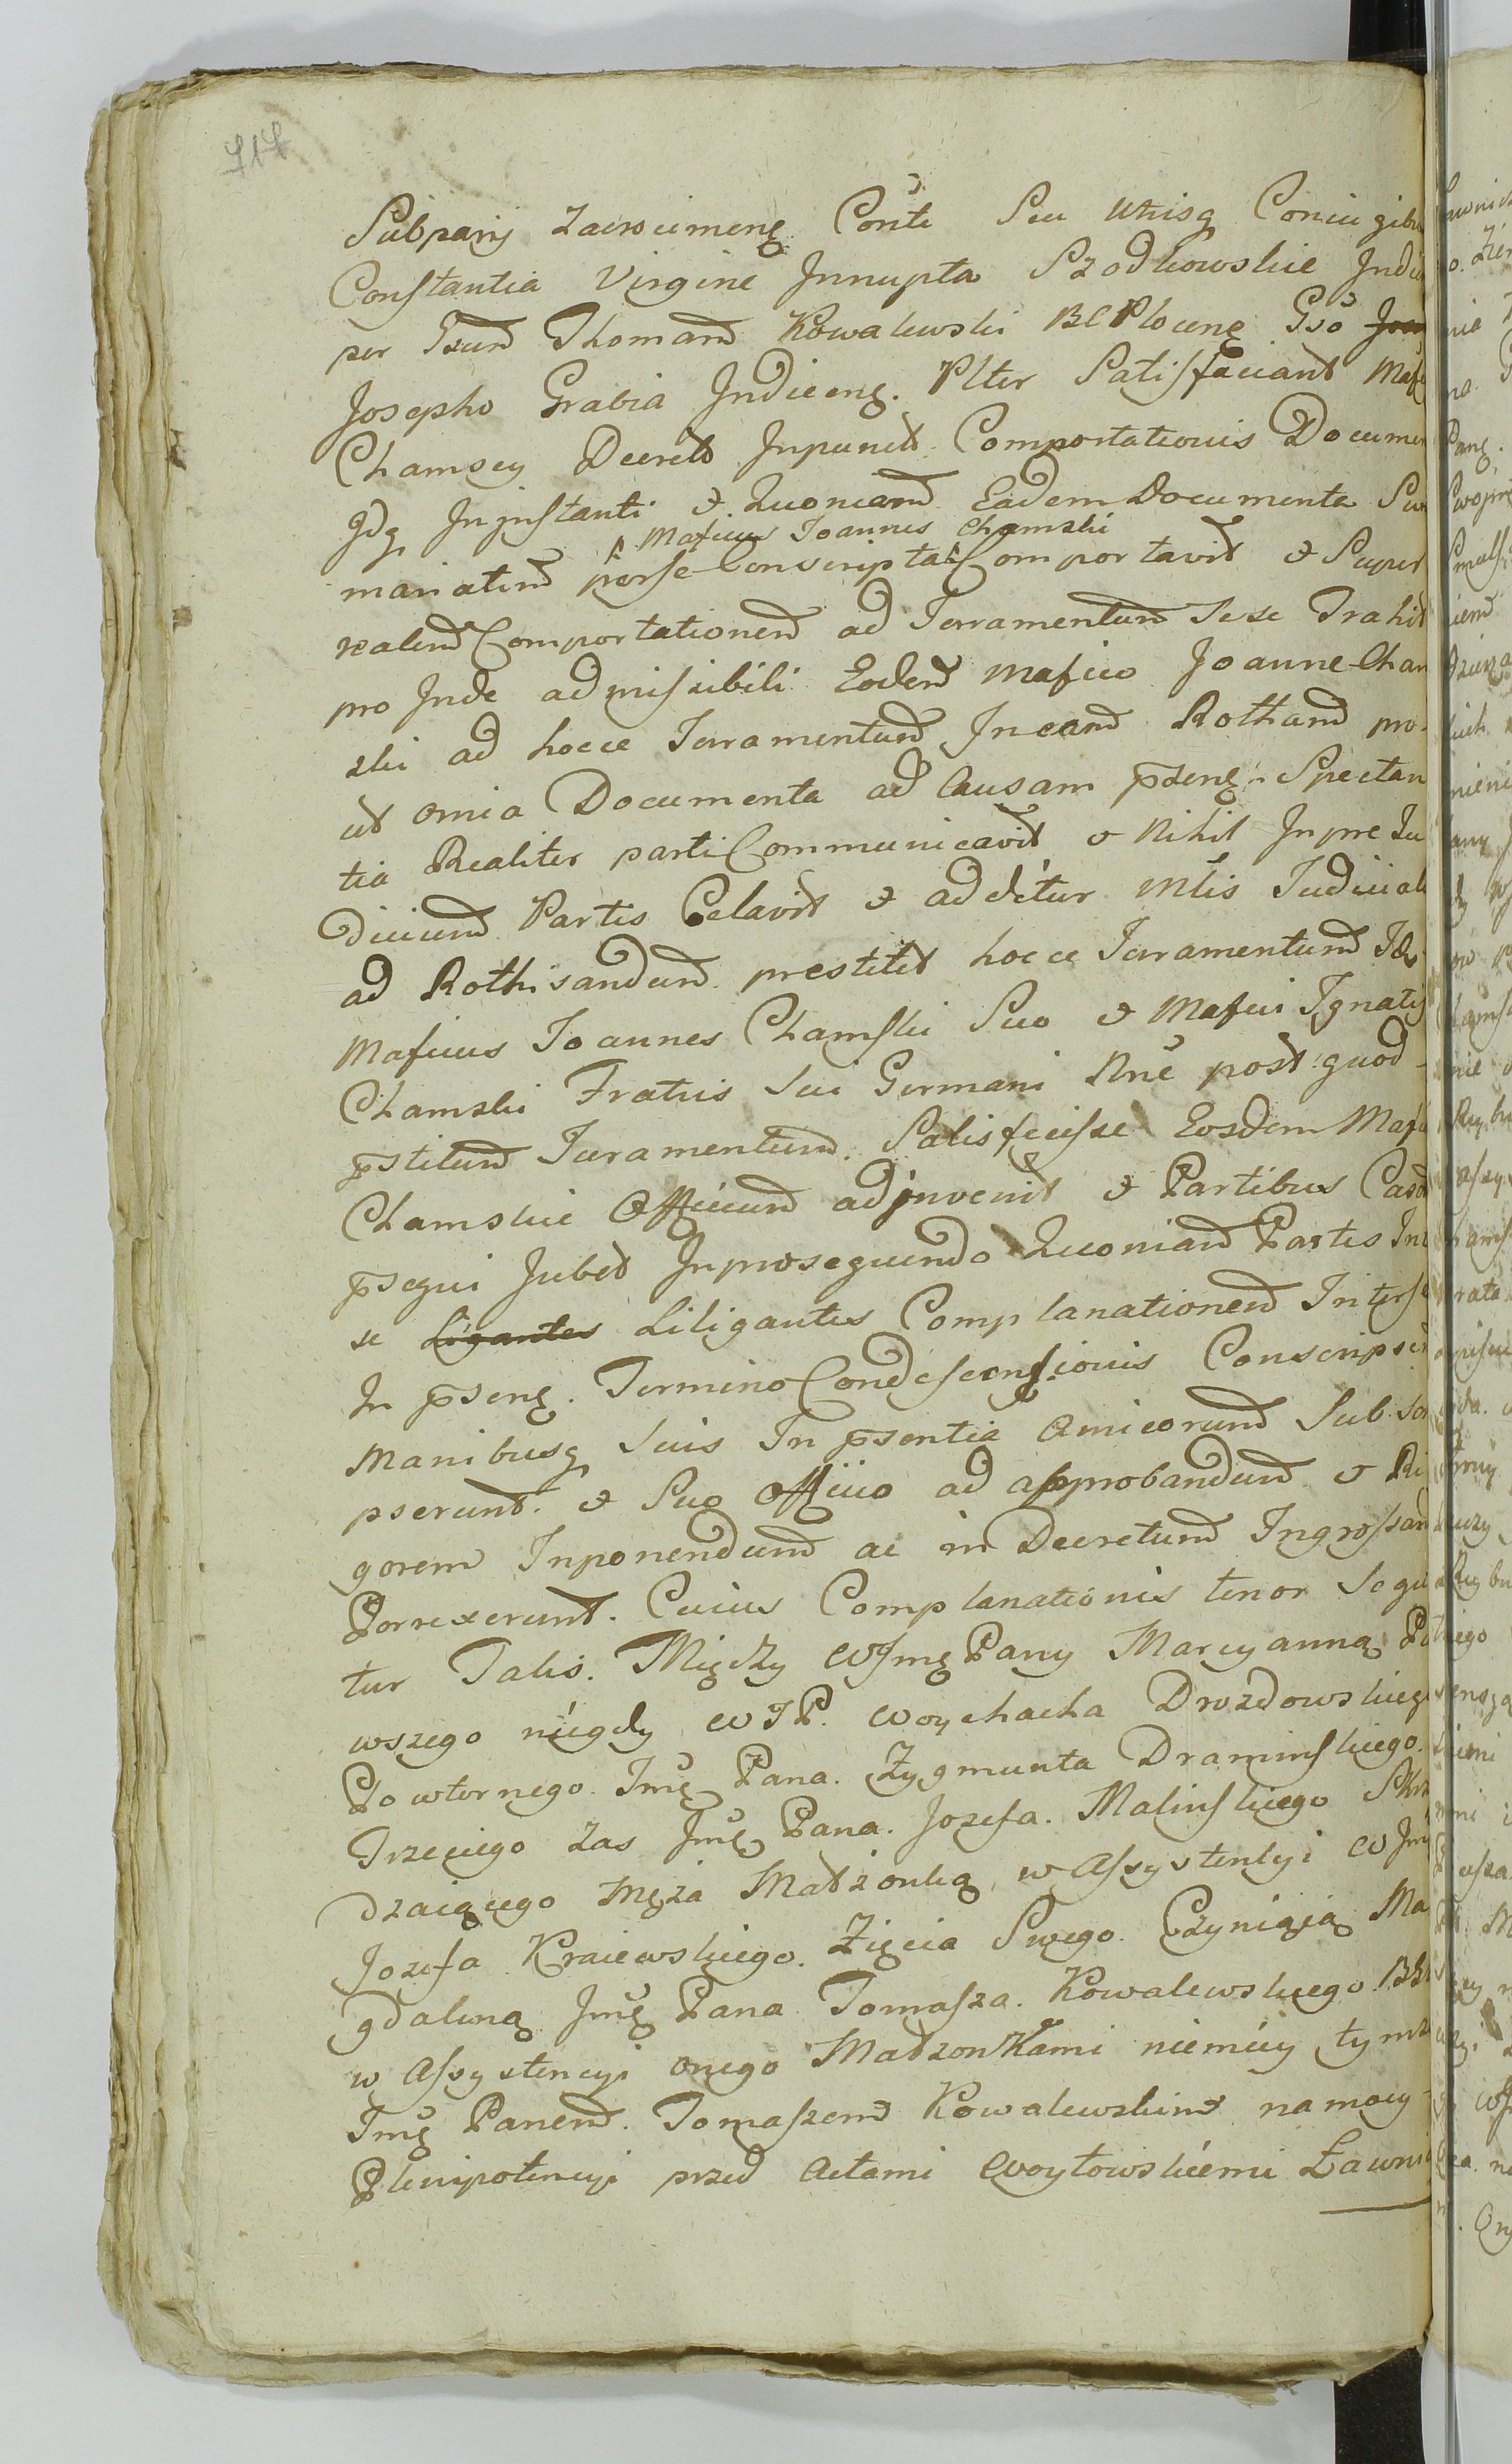 Subparij Zawscimenς Conte Seu Utrisq Coniugibu
Constantia Virgine Innupta Szodkowskie Indu
per Tsum Thomam Kowalewski BC Plocenς Gso
Josepho Grabia Indicenς. Plter Satisfaciant Mafi
Chamscy Decreto Inpuncto Comportationis Documen
Idq Ininstanti & Quoniam Eadem Documenta Sum
Maficus Joannes Chamski
mariatim perse Conscripta Comportavit & Super
realem Comportationem ad Juramentum Sese Trahit
pro Inde admissibili Eodem Mafico Joanne Cham
ski ad hocce Juramentum In eam Rotham pro-
ut omia Documenta ad Causam psenς Spectan
tia Realiter parti Communicavit & Nihil In preju
dicium Partis Celavit & additur Mtis Judicial
ad Rothisandum prestitit hocce Juramentum Idem
Maficus Joannes Chamski Suo & Mafici Ignatij
Chamski Fratris Sui Germani Nne post quod-
pstitum Juramentum Satisfecisse Eosdem Mafi
Chamskie Officium adinvenit & Partibus Causam
psequi Jubet Inprosequendo Quoniam Partes Int
se Ligantes Litigantes Complanationem Interse
In psenς. Termino Condescensionis Conscripser
Manibusq Suis In psentia Amicorum Subscri
pserunt. & Suo Officio ad approbandum & Ri
gorem Inponendum ac in Decretum Ingrossand
Porrexerunt. Cuius Complanationis tenor Sequi
tur Talis. Między WJmς Pany Marcyanną Pi
wszego niegdy WJP. Woychacha Drozdowskiego
Powtornego Jmς Pana. Zygmunta Draminskiego.
Trzeciego zas Jmς Pana. Jozefa. Malinskiego Skr
dzaiącego Męża Małżonką w Assystencyi WJm
Jozefa Kraiewskiego. Zięcia Swego. Czyniącą Ma
gdaleną Jmς Pana Tomasza. Kowalewskiego BK
w Assystencyi onego Małżonkami niemiey tymz
Jmς Panem. Tomaszem Kowalewskim na mocy-
Plenipotencyi przed Aktami Woytowskiemi Ławni